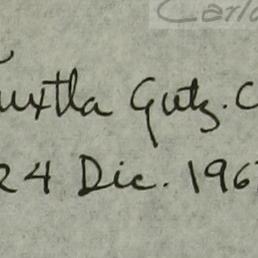 Carlo
Tuxtla Gutz. C
24 Dic. 196